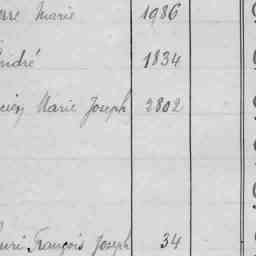 Marie 1986
André 1834
Marie Joseph 2802
François Joseph 34